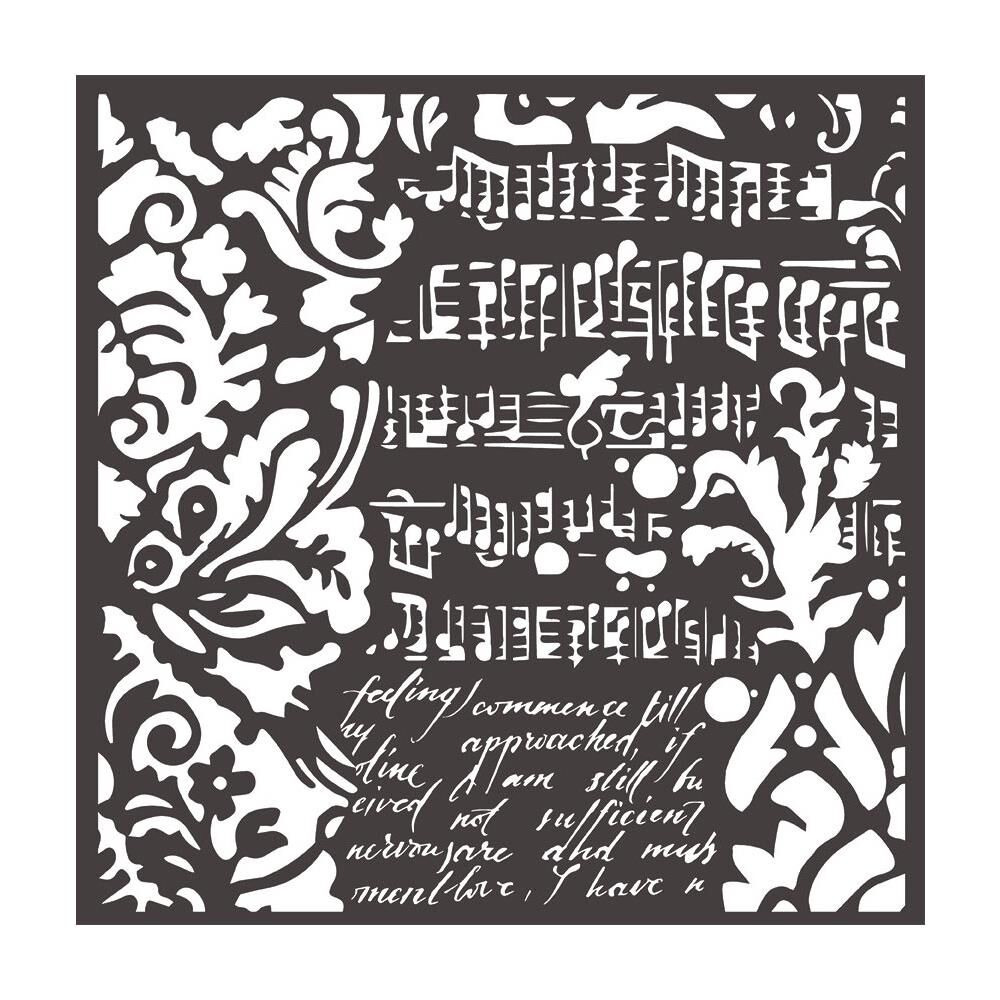 feeling) commence till
ry approached, if
oline I am still bu
eived not sufficient
nervousare and mus
ment love, I have n